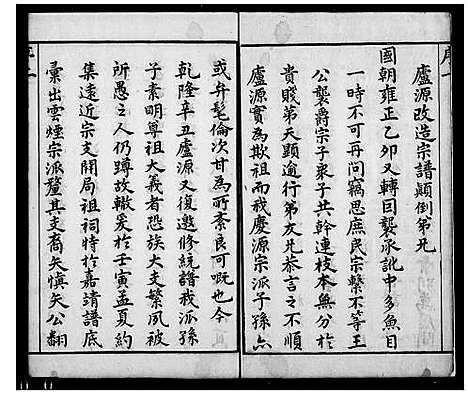 序一
廬源改造宗譜顛倒第兄
國朝雍正乙卯又轉回襲承訛中多魚目
一時不可再問竊思庶民宗繫不等王
公襲爵宗子衆子共幹連枝本無分於
貴賤第天顯逾行第友兄恭言之不順
廬源實為欺祖而我慶源宗派子孫亦
或弁髦倫次甘為所紊良可嘅也今
乾隆辛丑廬源又復邀修統譜我派子
子素明尊祖大義者恐族大支繁夙被
所愚之人仍蹲故轍爰於壬寅孟夏約
集遠近宗支開局祖祠特於嘉靖譜底
彙出雲煙宗派釐其支裔矢慎矢公翻